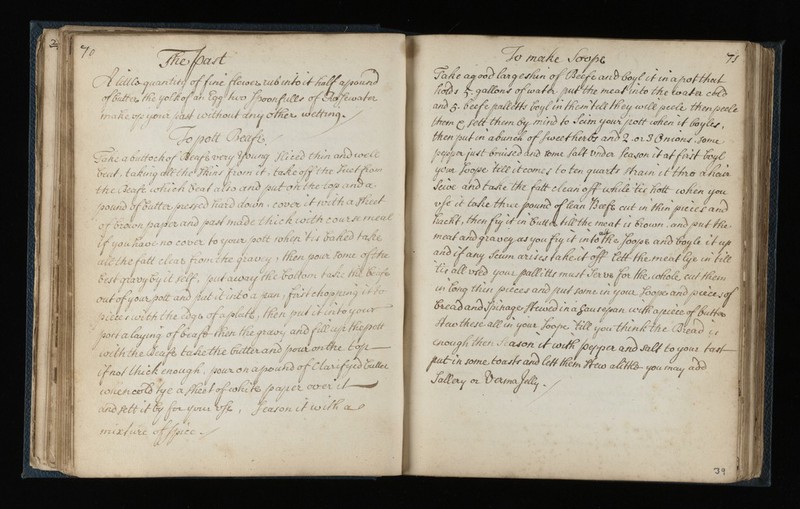 70
The past
A little quantity of fine flower rub into it half a pound
of butter the yolk of an Egg two spoonfulls of Rosewater
make up your past without any other wetting.
To pott Beafe
Take a buttock of Beafe very young sliced thin and well
beat, taking all the skins from it, take off the suet from
the Beafe which beat also and put on the top and a
pound of butter pressed hard down, cover it with a sheet
of brown paper and past made thick with course meal
if you have no cover to your pott when 'tis baked take
all the fatt clear from the gravy, then pour some of the
best gravy by it self, put away the bottom take the beafe
out of your pott and put it into a pan, first chopping it to
pieces with the edge of a plate, then put it into your
pott a laying of beafe then the gravy and fill up the pott
with the Beafe take the butter and pour on the top
if not thick enough, pour on a pound of Clarifyed butter
when cold tye a sheet of white paper over it
and sett it by for your use, season it with a
mixture of spice.
To make Soope
71
Take a good large shin of Beefe and boyl it in a pot that
holds 5 gallons of water put the meat into the water cold
and 5 beefe pallitts boyl in them till they will peele then peele
them & sett them by mind to scim your pott when it boyles,
then put in a bunch of sweet herbs and 2 or 3 Onions, some
pepper just bruised and some salt under season it at first boyl
your soope till it comes to ten quarts strain it thro a hair
seive and take the fatt clean off while tis hott when you
use it take three pound of lean Beefe cut in thin pieces and
hackt, then fry it in butter till the meat is brown, and put the
meat and gravey as you fry it into the soope and boyle it up
all
and if any scum arises take it off Lett the meat lye in till
tis all used your pallitts must serve for the whole cut them
in long thin pieces and put some in your soope and pieces of
bread and spinage stewed in a saucepan with a piece of butter
stew these all in your soope till you think the Bread is
enough then season it with pepper and salt to your tast
put in some toasts and lett them stew a little you may add
Sallery or Vermajelly.
39